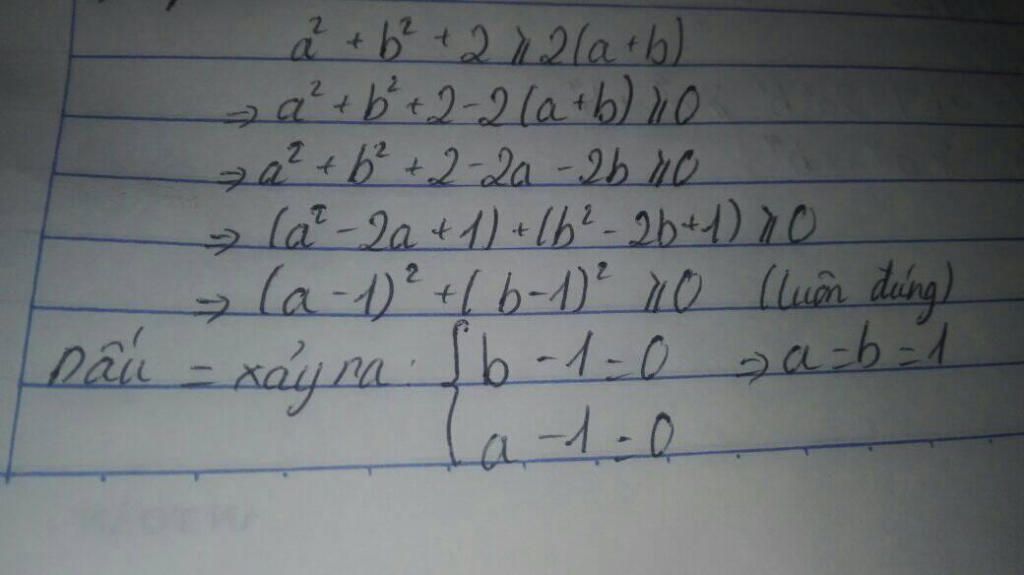 a² + b² + 2 ⩾ 2(a+b)
⇒ a² + b² + 2 - 2(a+b) ⩾ 0
⇒ a² + b² + 2 - 2a - 2b ⩾ 0
⇒ (a² - 2a + 1) + (b² - 2b + 1) ⩾ 0
⇒ (a - 1)² + (b - 1)² ⩾ 0 (luôn đúng)
Dấu = xảy ra: { b - 1 = 0 ⇒ a = b = 1
a - 1 = 0